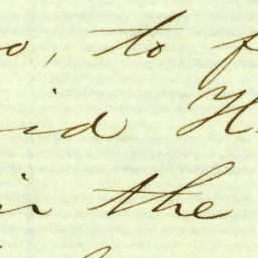 o, to
id H
in the